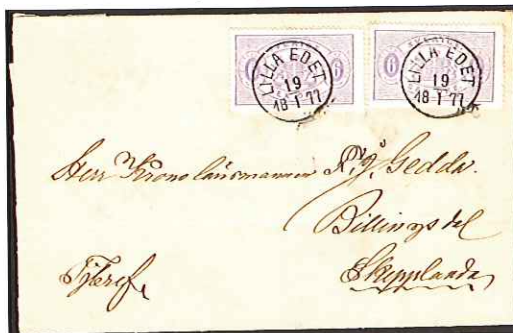 6 6
LILLA EDET
19
18 1 77
6
LILLA EDET
19
18 1 77
Herr Kronolänsmannen Gedda.
Billingsdal
Skepplanda
Tjbref.